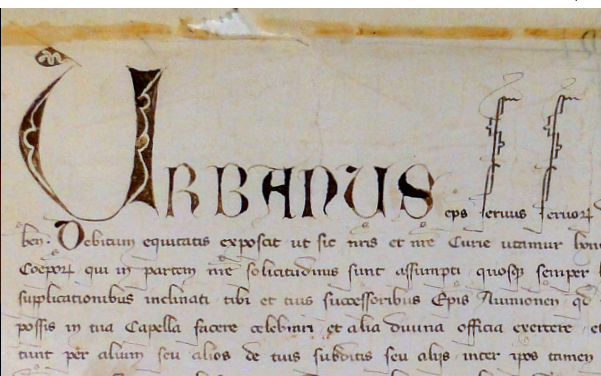 URBANUS eps servus servor
ben. Debitum equitatis exposcit ut sic nris et nre Curie utamur
Coepor qui in partem nre solicitudinis sunt assumpti quosq semper
supplicationibus inclinati tibi et tuis successoribus Epis Avinionen qd
possis in tua Capella facere celebrari et alia divina officia exercere et
tunt per alium seu alios de tuis subditis seu alijs inter ipos tamen